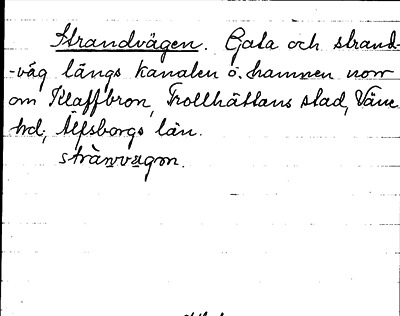 Strandvägen. Gata och strand-
-väg längs kanalen o. hamnen norr
om Klaffbron, Trollhättans stad, Väne
hd., Älfsborgs län.
strànvvægɷn.